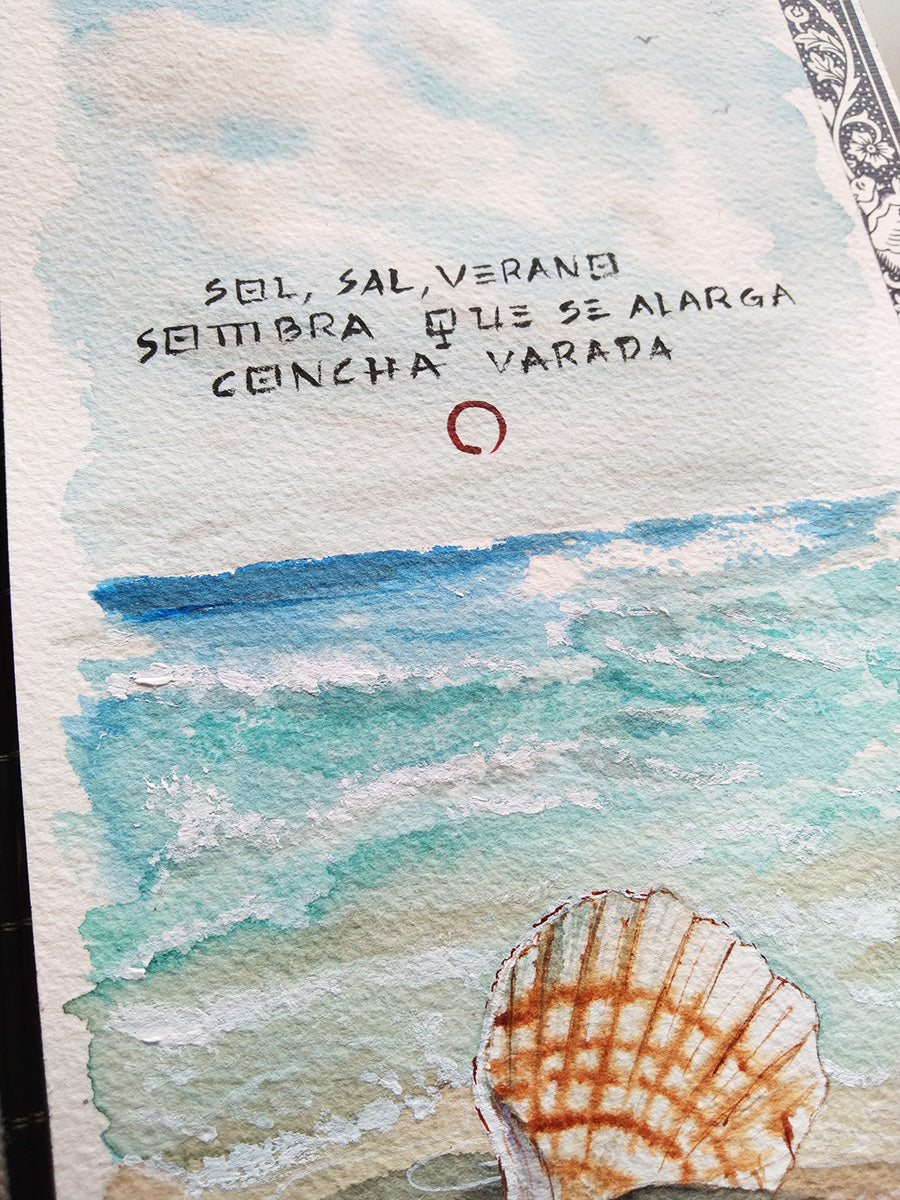 SOL, SAL, VERANO
SOMBRA QUE SE ALARGA
CONCHA VARADA